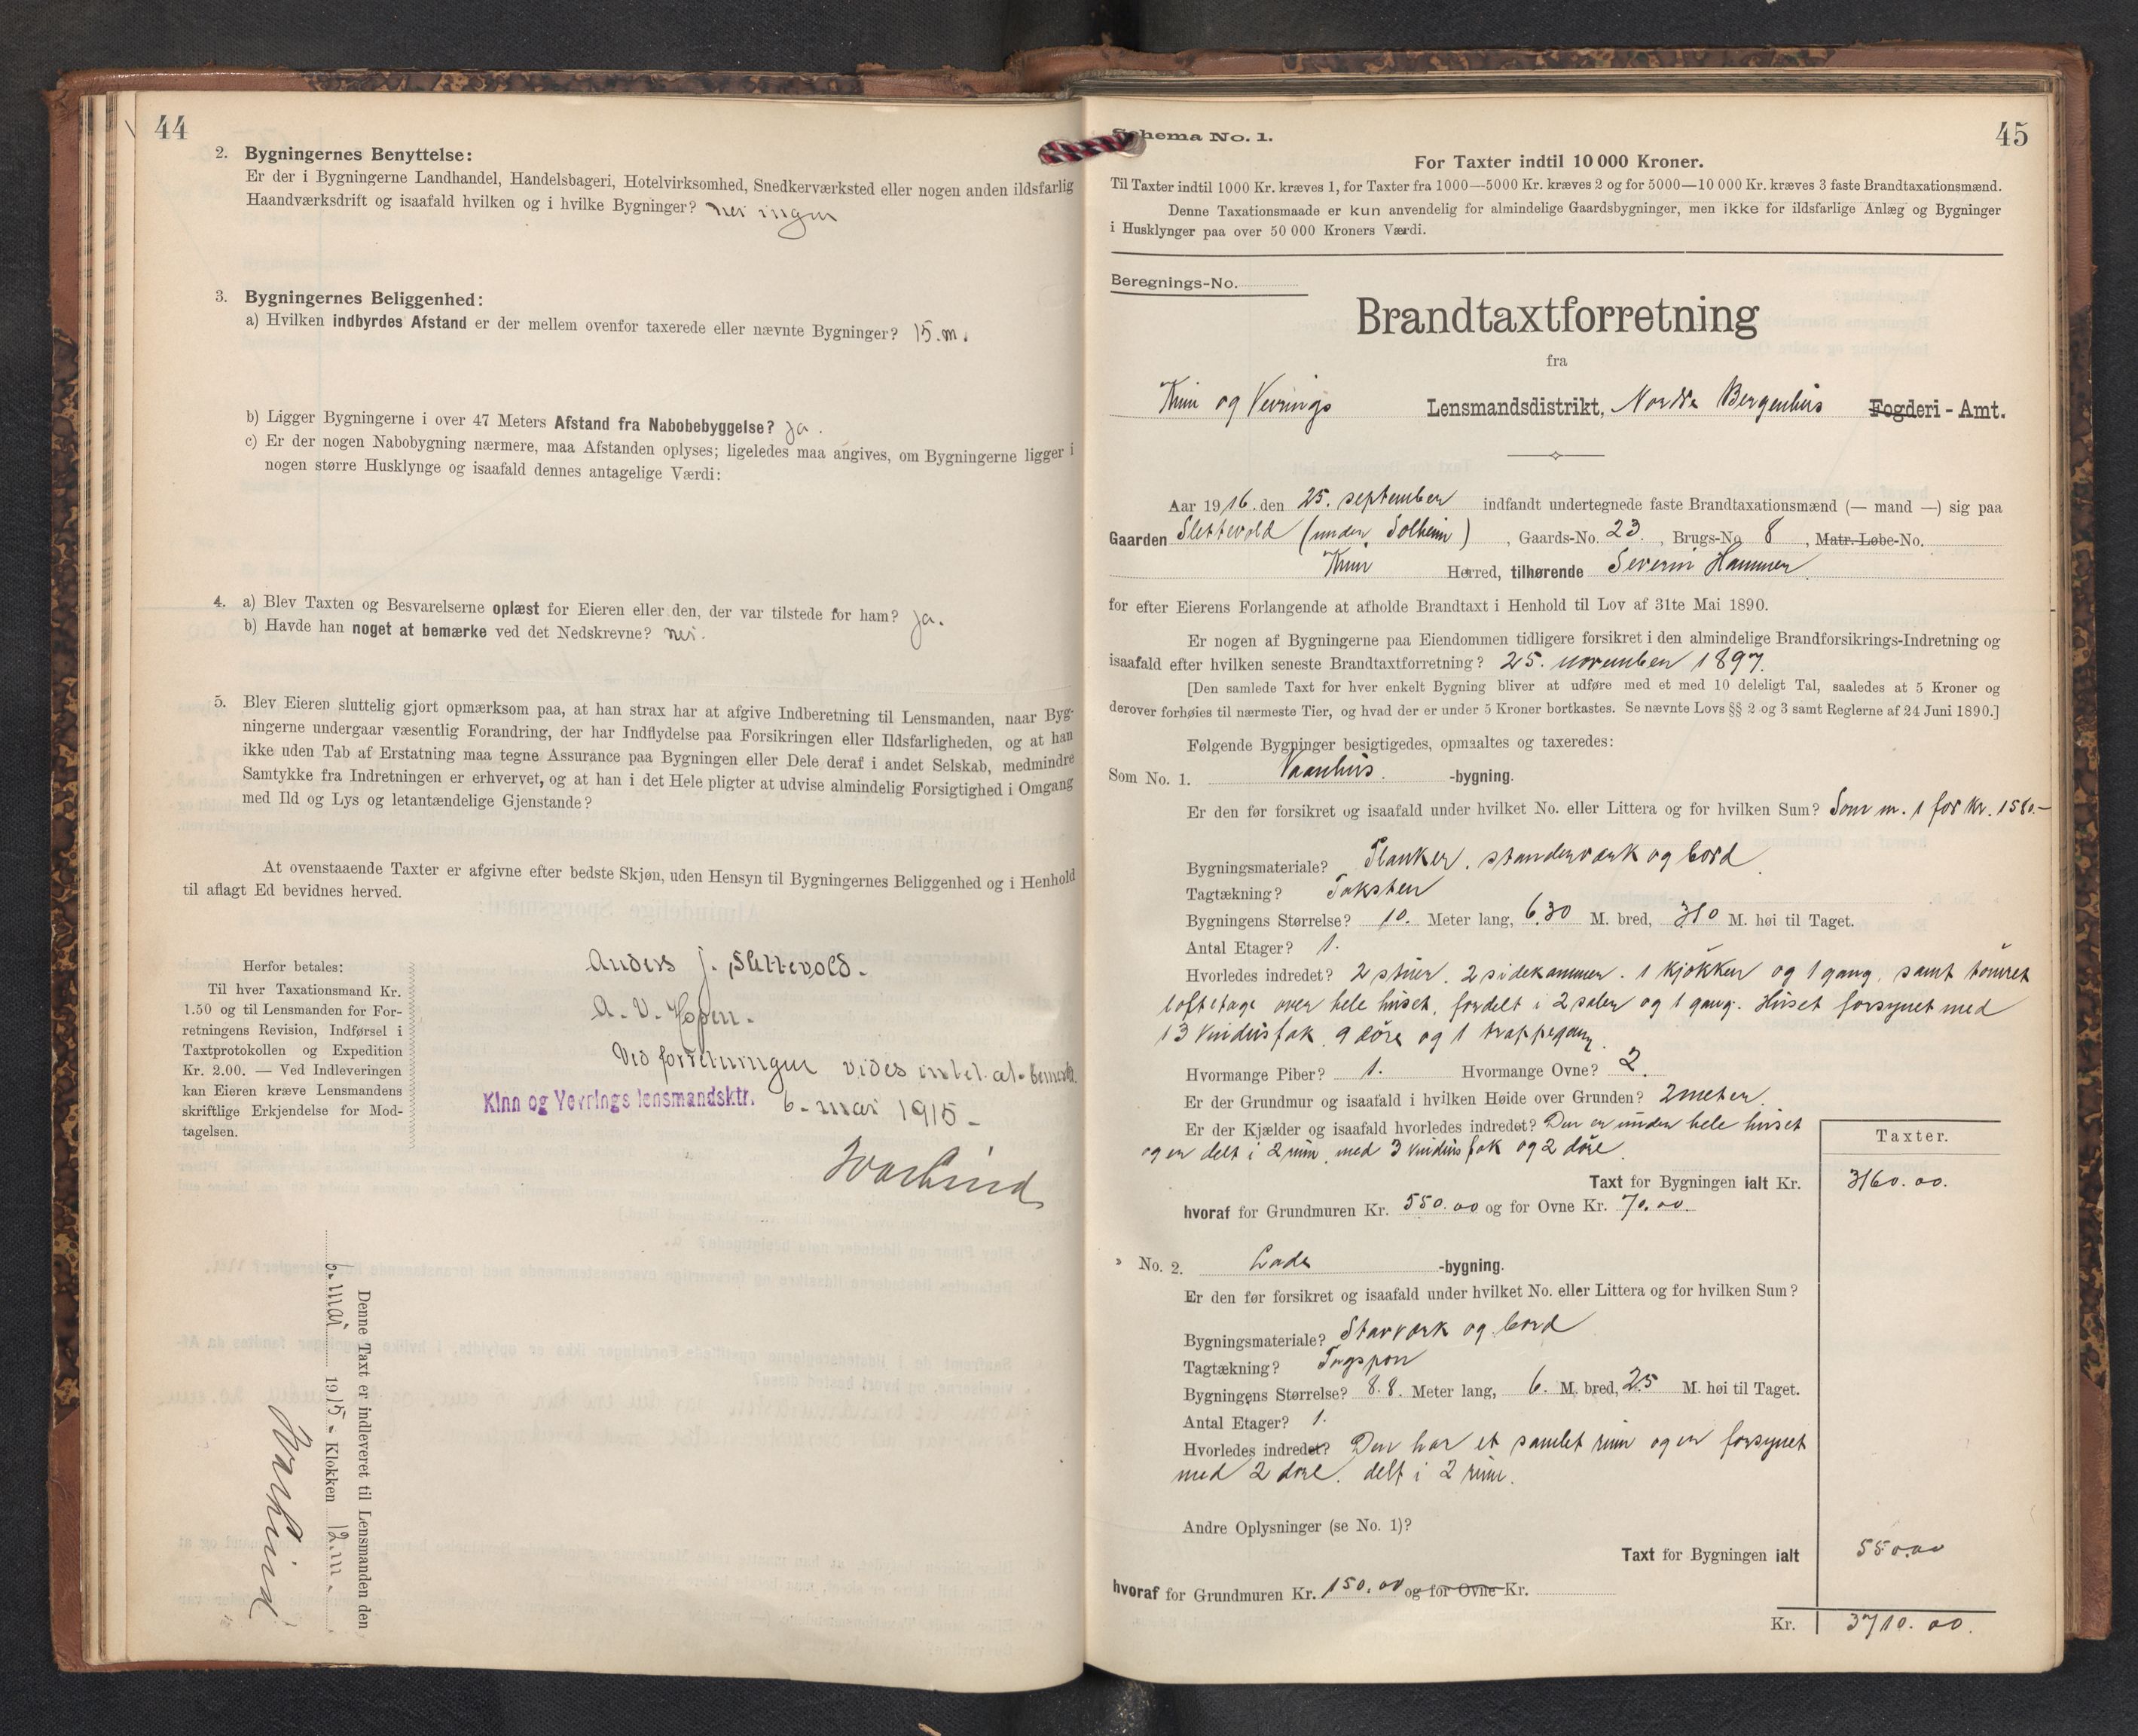 44
2. Bygningernes Benyttelse:
Er der i Bygningerne Landhandel, Handelsbageri, Hotelvirksomhed, Snedkerværksted eller nogen anden ildsfarlig
Haandværksdrift og isaafald hvilken og i hvilke Bygninger? nei ingen
3. Bygningernes Beliggenhed:
a) Hvilken indbyrdes Afstand er der mellem ovenfor taxerede eller nævnte Bygninger? 15.m.
b) Ligger Bygningerne i over 47 Meters Afstand fra Nabobebyggelse? ja.
c) Er der nogen Nabobygning nærmere, maa Afstanden oplyses; ligeledes maa angives, om Bygningerne ligger i
nogen større Husklynge og isaafald dennes antagelige Værdi:
4. a) Blev Taxten og Besvarelserne oplæst for Eieren eller den, der var tilstede for ham? ja.
b) Havde han noget at bemærke ved det Nedskrevne? nei.
5. Blev Eieren sluttelig gjort opmærksom paa, at han strax har at afgive Indberetning til Lensmanden, naar Byg-
ningerne undergaar væsentlig Forandring, der har Indflydelse paa Forsikringen eller Ildsfarligheden, og at han
ikke uden Tab af Erstatning maa tegne Assurance paa Bygningen eller Dele deraf i andet Selskab, medmindre
Samtykke fra Indretningen er erhvervet, og at han i det Hele pligter at udvise almindelig Forsigtighed i Omgang
med Ild og Lys og letantændelige Gjenstande?
At ovenstaaende Taxter er afgivne efter bedste Skjøn, uden Hensyn til Bygningernes Beliggenhed og i Henhold
til aflagt Ed bevidnes herved.
Herfor betales:
Til hver Taxationsmand Kr.
1.50 og til Lensmanden for For-
retningens Revision, Indførsel i
Taxtprotokollen og Expedition
Kr. 2.00. — Ved Indleveringen
kan Eieren kræve Lensmandens
skriftlige Erkjendelse for Mod-
tagelsen.
Anders J. Slettevold.
A. V. Hopen.
Ved forretningen vides intet at bemerke.
Kinn og Vevrings lensmandsktr. 6. mai 1915.
Denne Taxt er indleveret til Lensmanden den
6. mai 1915. Klokken 12.m.
Schema No. 1.
45
For Taxter indtil 10 000 Kroner.
Til Taxter indtil 1000 Kr. kræves 1, for Taxter fra 1000—5000 Kr. kræves 2 og for 5000—10 000 Kr. kræves 3 faste Brandtaxationsmænd.
Denne Taxationsmaade er kun anvendelig for almindelige Gaardsbygninger, men ikke for ildsfarlige Anlæg og Bygninger
i Husklynger paa over 50 000 Kroners Værdi.
Beregnings-No.
Brandtaxtforretning
fra
Kinn og Vevrings Lensmandsdistrikt, Nordre Bergenhus Fogderi-Amt.
Aar 1916. den 25. september indfandt undertegnede faste Brandtaxationsmænd (— mand —) sig paa
Gaarden Slettevold (under Solheim), Gaards-No. 23., Brugs-No. 8, Matr.-Løbe-No.
Kinn Herred, tilhørende Severin Hammer
for efter Eierens Forlangende at afholde Brandtaxt i Henhold til Lov af 31te Mai 1890.
Er nogen af Bygningerne paa Eiendommen tidligere forsikret i den almindelige Brandforsikrings-Indretning og
isaafald efter hvilken seneste Brandtaxtforretning? 25. november 1897.
[Den samlede Taxt for hver enkelt Bygning bliver at udføre med et med 10 deleligt Tal, saaledes at 5 Kroner og
derover forhøies til nærmeste Tier, og hvad der er under 5 Kroner bortkastes. Se nævnte Lovs §§ 2 og 3 samt Reglerne af 24 Juni 1890.]
Følgende Bygninger besigtigedes, opmaaltes og taxeredes:
Som No. 1. Vaanhus. -bygning.
Er den før forsikret og isaafald under hvilket No. eller Littera og for hvilken Sum? Som nr. 1 for kr. 1580.-
Bygningsmateriale? Planker, standerværk og bord
Tagtækning? Taksten
Bygningens Størrelse? 10. Meter lang, 6.30 M. bred, 3.10 M. høi til Taget.
Antal Etager? 1.
Hvorledes indredet? 2 stuer. 2 sidekammer. 1 kjøkken og 1 gang, samt tømret
loftetage over hele huset, fordelt i 2 saler og 1 gang. Huset forsynet med
13 vindusfak, 9 døre og 1 trappegang.
Hvormange Piber? 1. Hvormange Ovne? 2.
Er der Grundmur og isaafald i hvilken Høide over Grunden? 2 meter.
Er der Kjælder og isaafald hvorledes indredet? Der er under hele huset
og er delt i 2 rum, med 3 vindusfak og 2 døre.
Taxter.
Taxt for Bygningen ialt Kr. 3160.00.
hvoraf for Grundmuren Kr. 550.00 og for Ovne Kr. 70.00.
» No. 2. Lade -bygning.
Er den før forsikret og isaafald under hvilket No. eller Littera og for hvilken Sum?
Bygningsmateriale? Stavværk og bord
Tagtækning? Tagspon
Bygningens Størrelse? 8.8. Meter lang, 6. M. bred, 2.5 M. høi til Taget.
Antal Etager? 1.
Hvorledes indredet? Den har et samlet rum og er forsynet
med 2 døre. delt i 2 rum.
Andre Oplysninger (se No. 1)?
Taxt for Bygningen ialt 550.00
hvoraf for Grundmuren Kr. 150.00 og for Ovne Kr.
Kr. 3710.00.